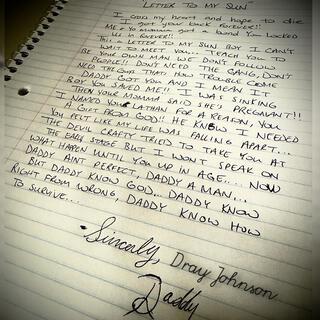 LETTER TO MY SUN
I cross my heart and hope to die
I got your back forever!!
Me & yo momma got a bond you locked
us in forever!!
This a letter to my sun boy I can't
wait to meet you... Teach you to
be your own man we don't follow
people!! Don't need the gang, don't
need the guap that how trouble come
Daddy got you and I mean it
Boy you saved me!! I was sinking
then your momma said she's pregnant!!
I named you Lathan for a reason, you
a gift from God!! He know I needed
you felt like my life was falling apart...
The devil crafty tried to take you at
the early stage but I won't speak on
what happen until you up in age.... Now
daddy ain't perfect, daddy a man...
But daddy know God... daddy know
right from wrong, daddy know how
to survive....
Sincerly, Dray Johnson
Daddy